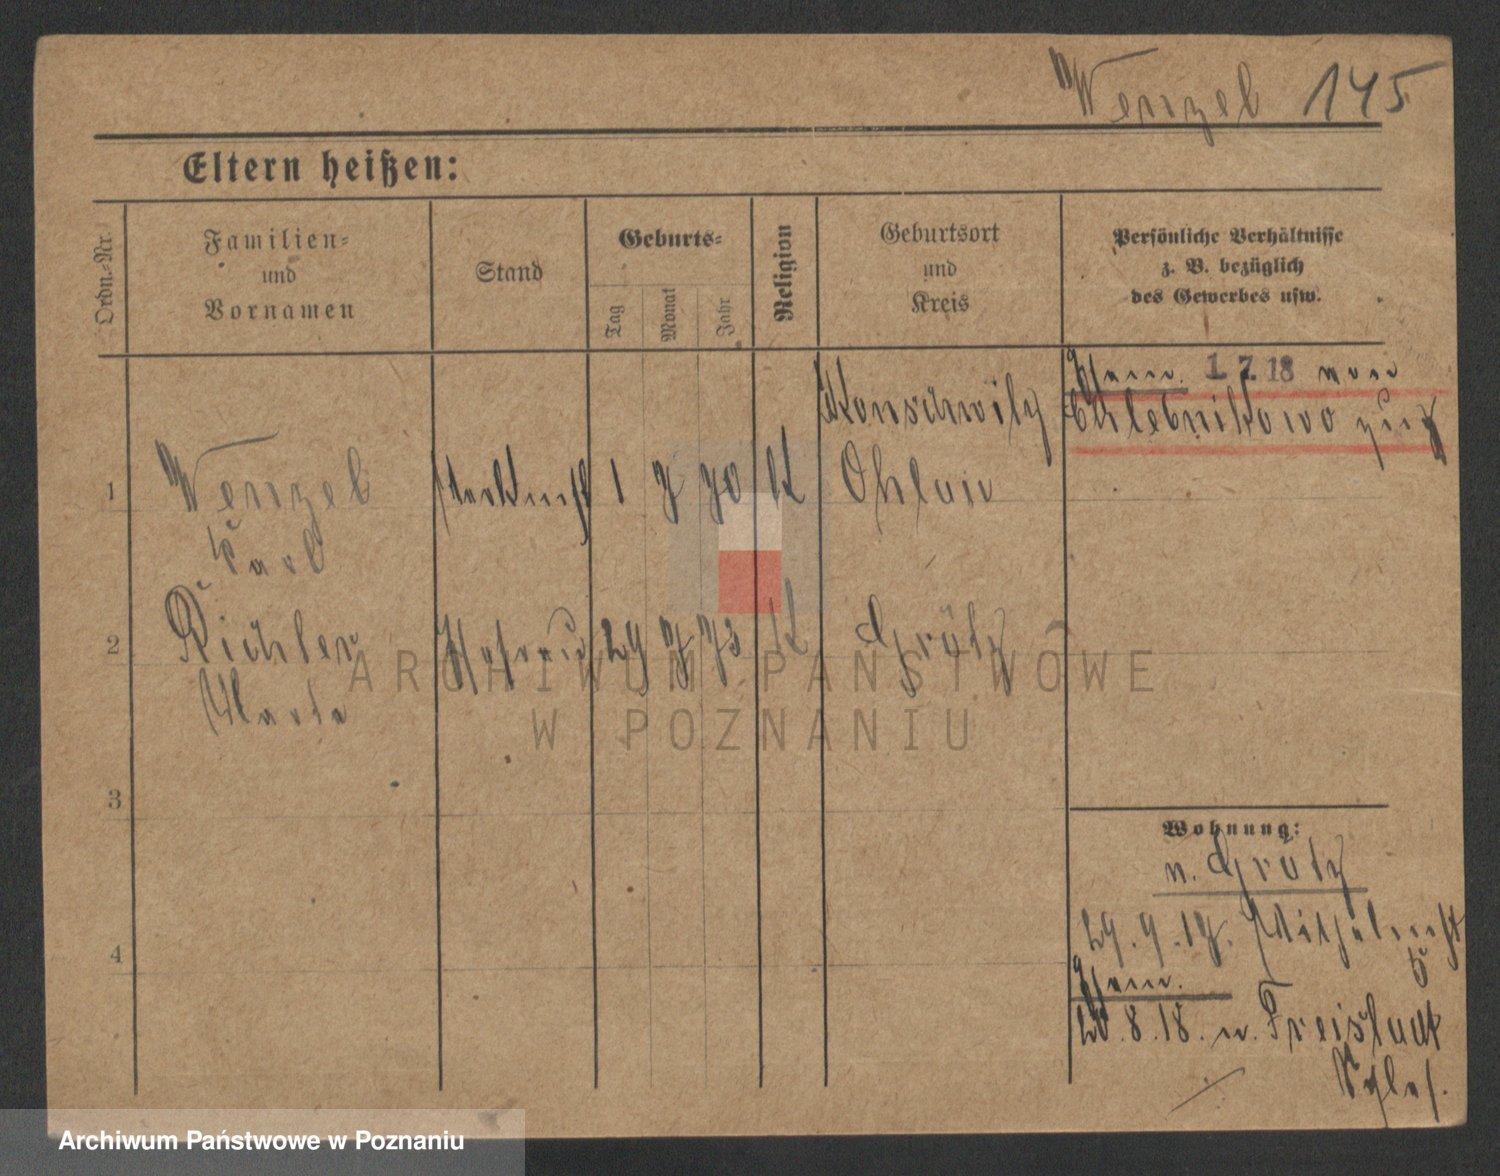 Wenzel 145
Eltern heißen:
Ordn.-Nr.
Familien-
und
Vornamen
Stand
Geburts-
Tag
Monat
Jahr
Religion
Geburtsort
und
Kreis
Persönliche Verhältnisse
z. B. bezüglich
des Gewerbes usw.
Fam. 1. 7. 18 von
Chlebnikowo zug
1
Wenzel
Karl
1 7 70 K
Ohlau
2
Richter
Marta
29 7 73 K
Grätz
3
4
Wohnung:
n. Grätz
29. 9. 17.
5
Fam.
20. 8. 18. n. Freistadt
Schles.
ARCHIWUM PAŃSTWOWE
W POZNANIU
Archiwum Państwowe w Poznaniu